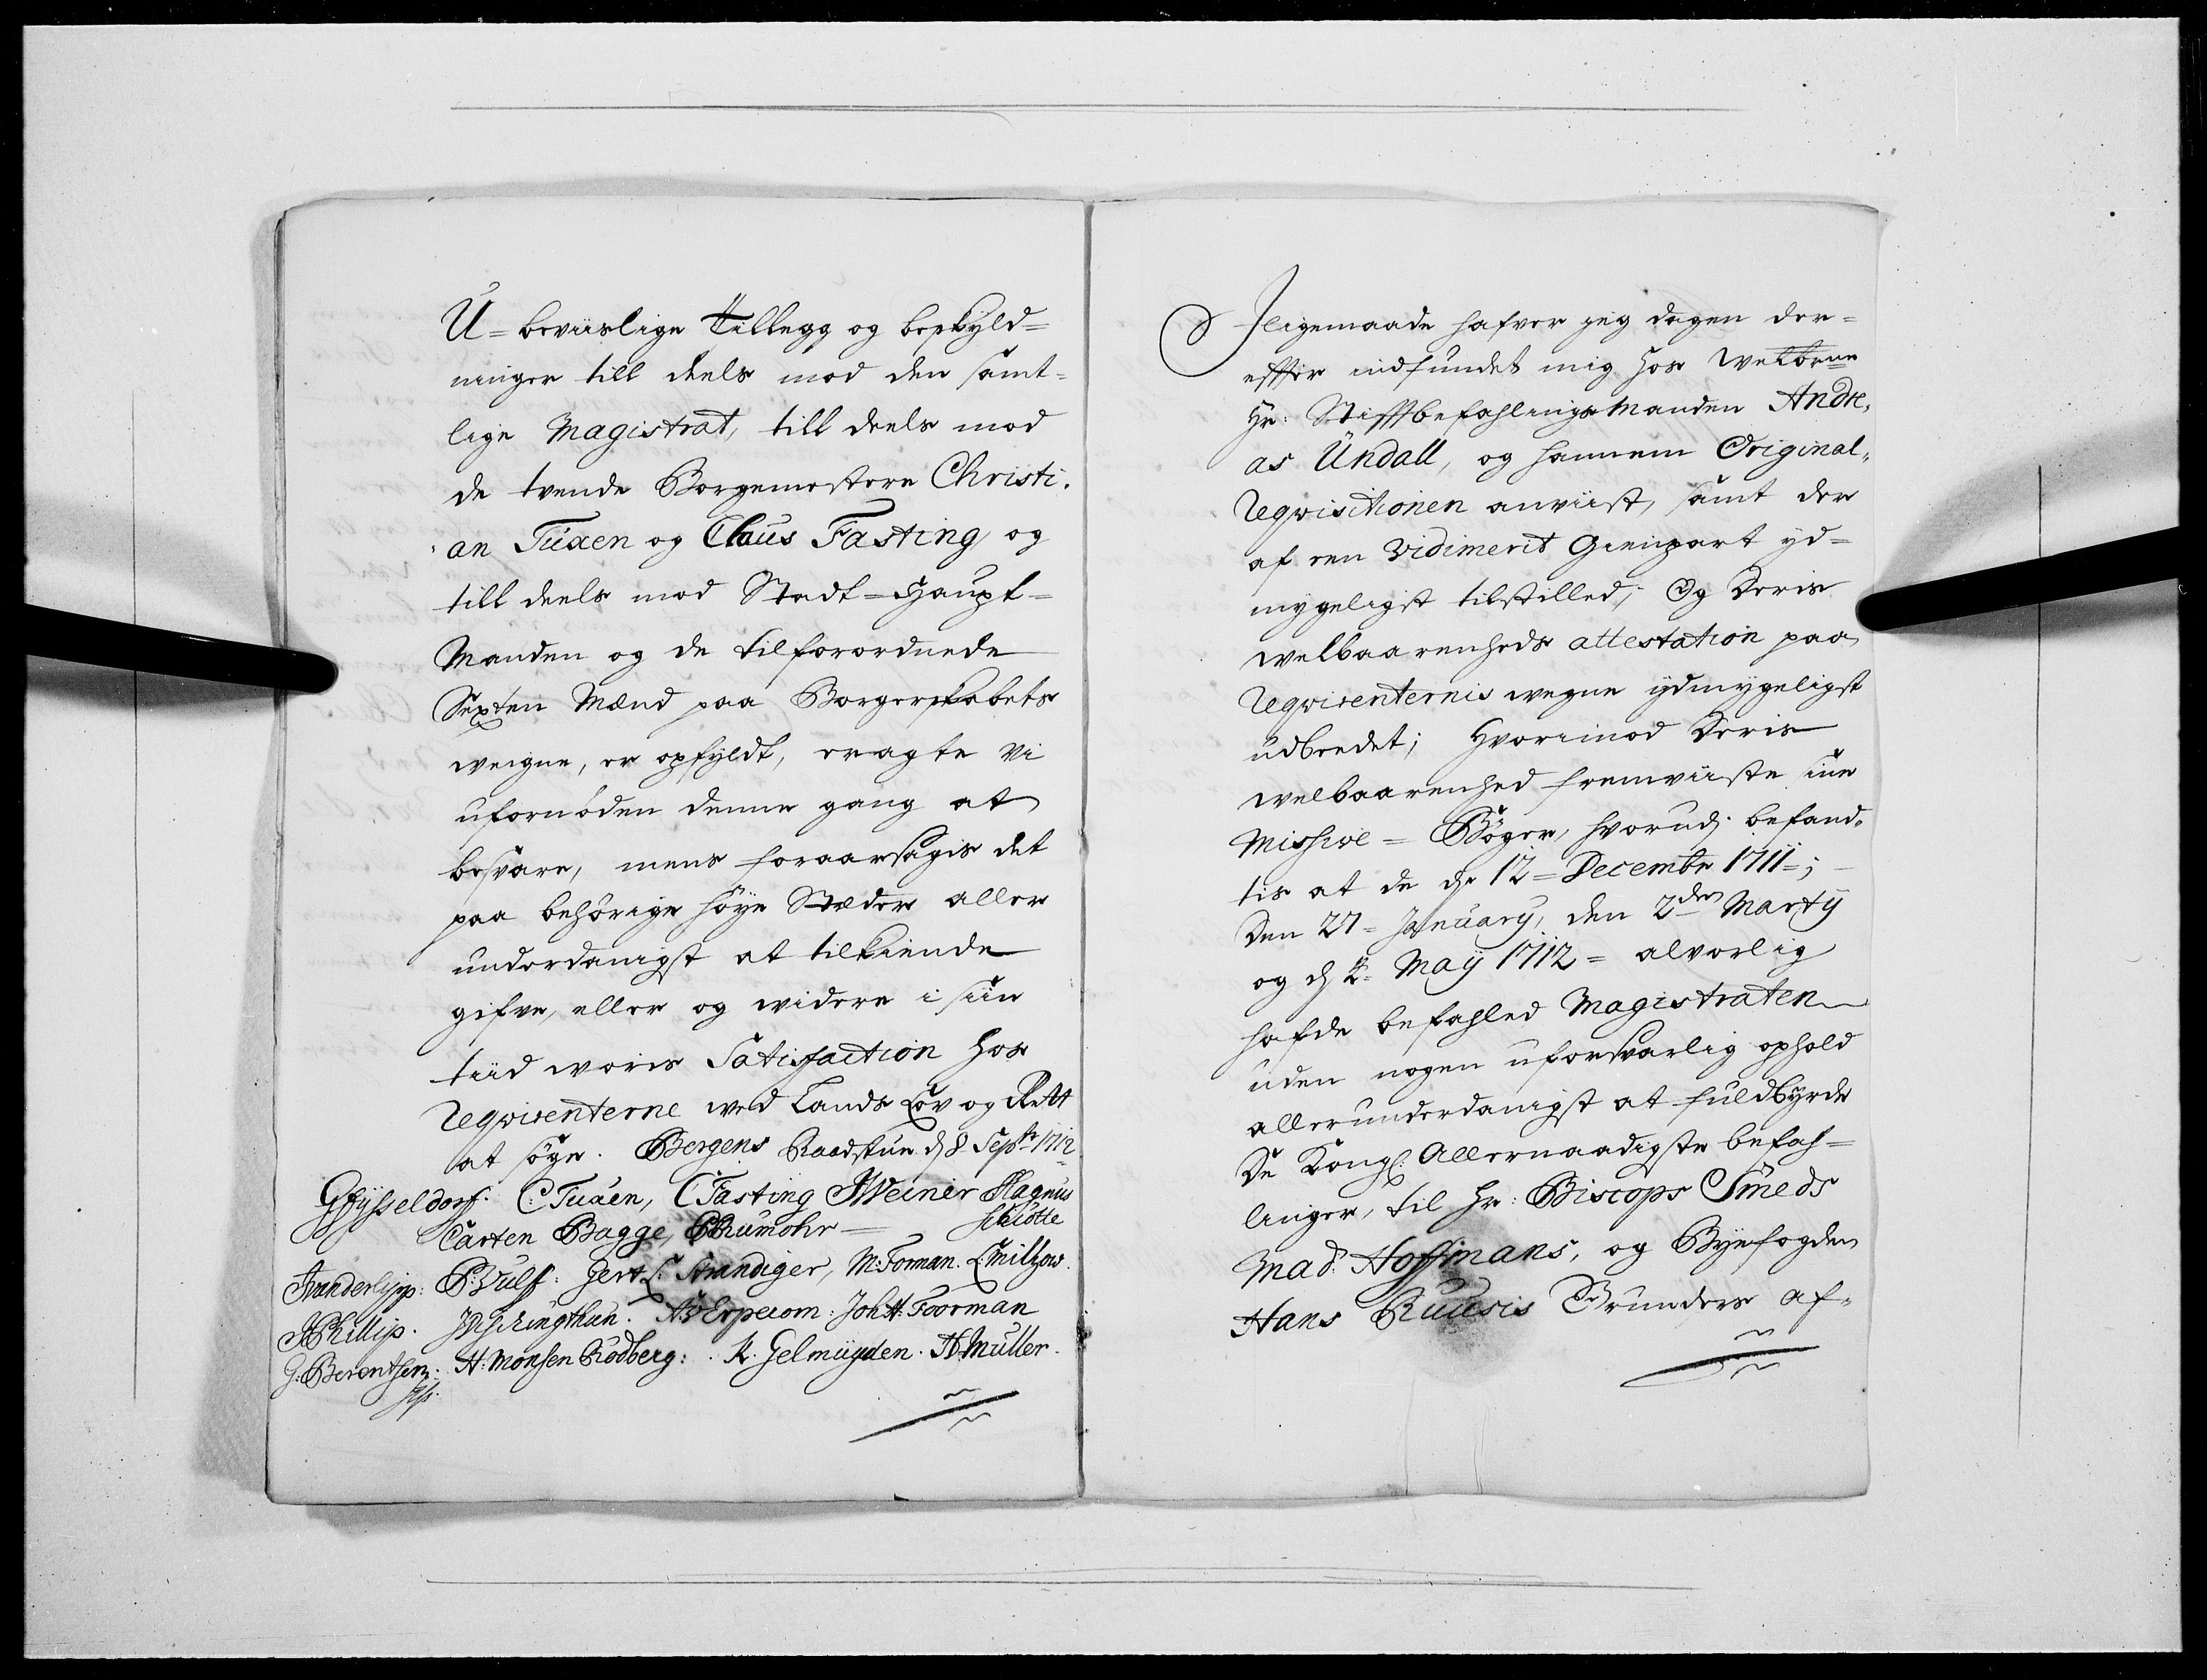 U=beviislige Tillegg og beskyld=
ninger till deels mod den samt=
lige Magistrat, till deels mod
de tvende Borgemestere Christi,
an Tuxen og Claus Fasting og
till deels mod Stadt=Haupt=
Manden og de tilforordnede
Sexten Mænd paa Borgerskabets
veigne, er opfyldt, eragte vi
ufornøden denne gang at
besvare, mens foraarsagis det
paa behørige høye Stæder aller
underdanigst at tilkiende
gifve, eller og widere i siin
tiid woris Satisfaction hos
Reqvirenterne wed Lands Lov og Rett
at søge. Bergens Raadstue d 8 Septr 1712
C Tuxen, C Fasting Weiner Magnus
Schiøtte
Carten Bagge, Rumohr
Vanderlipp: Gert L: Strandiger, M: Forman. Miltzow.
Phillip. Erpecom: Joh H: Foorman
G. Berentsen. H: Monsen Rodberg: K. Gelmuyden. H Muller.
Jligemaade hafver jeg dagen der=
effter indfundet mig hos Welborne
Hr: StifftbefahlingsManden Andre,
as Undall, og hannem Original,
Reqvisitionen anviist, samt der
af een Vidimerit Gienpart yd=
mygeligst tilstilled, Og Deris
welbaarenheds attestation paa
Reqvirenternis wegne ydmygeligst
udbeedet; Hvorimod Deris
welbaarenhed fremviiste siin
Missive=Bøger, hvorudj befand,
tis at de d 12= Decembr 1711=;
Den 27= January, den 2den Marty
og d Maij 1712= alvorlig
hafde befahled Magistraten
uden nogen uforsvarlig ophold
allerunderdanigst at fuldbyrde
De Kongl: Allernaadigste befah=
linger, til Hr: Biscops Smeds
Mad: Hoffmans, og Byefogden
Hans Ruusis Grunders af=